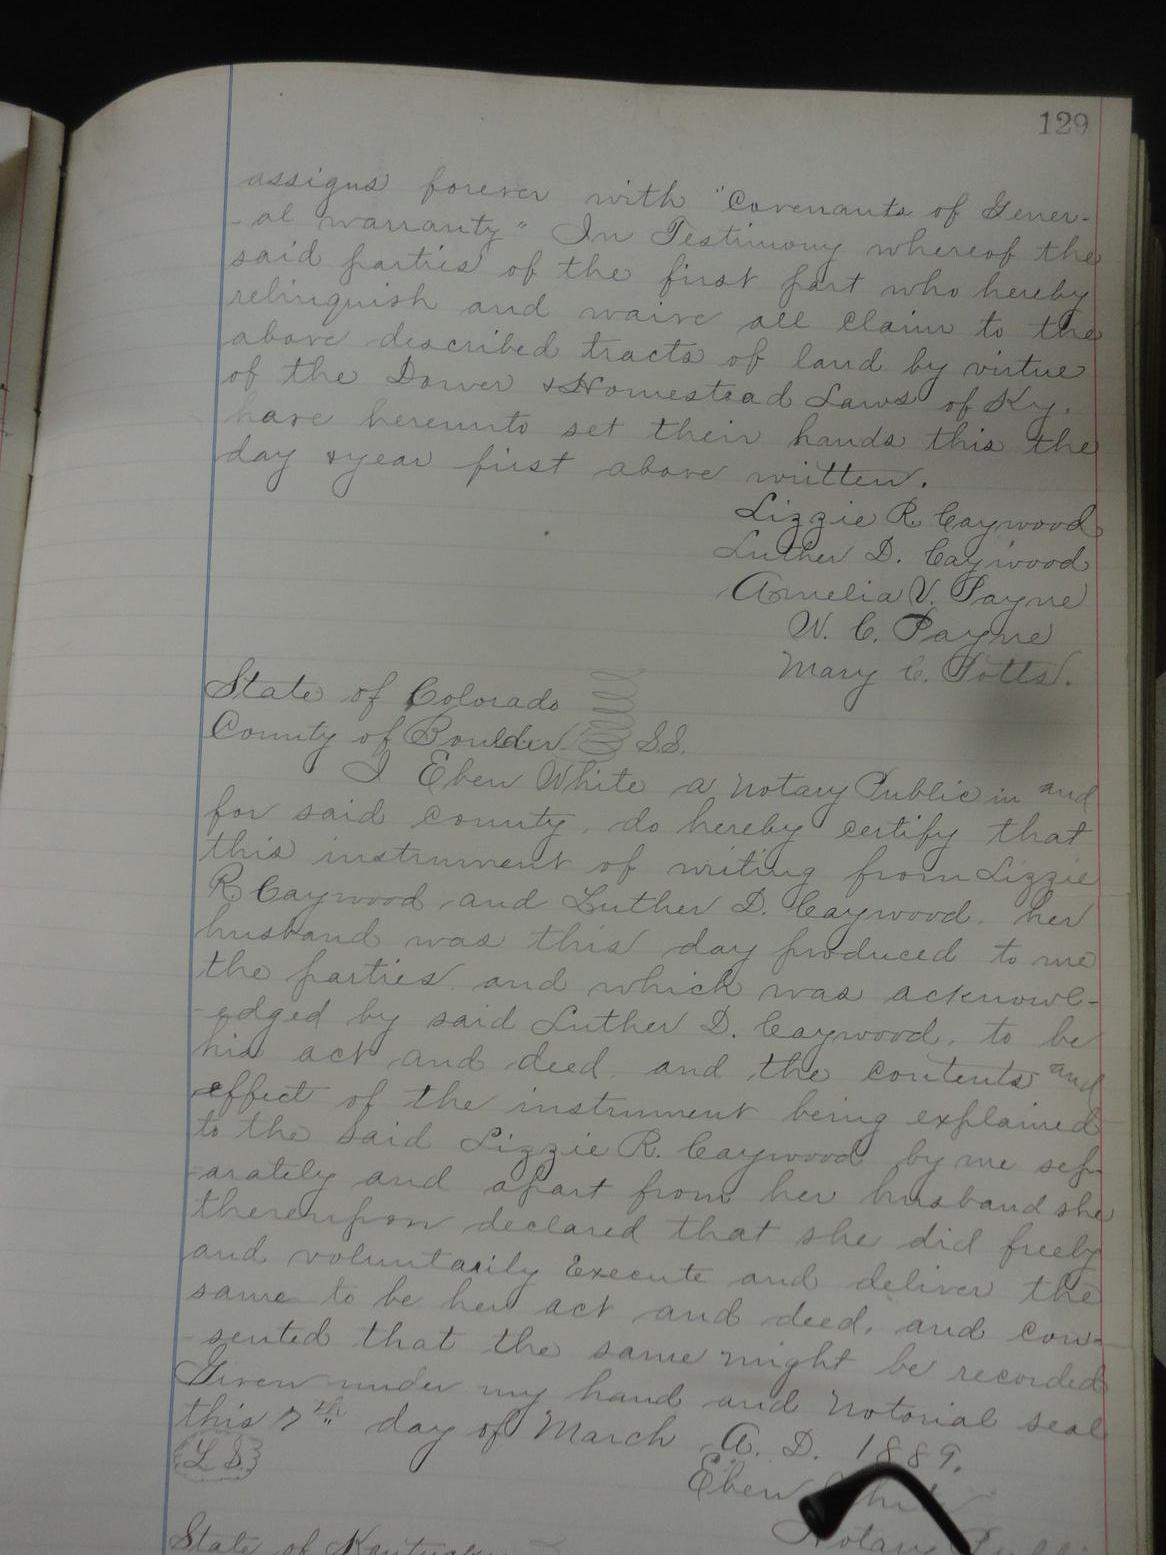 129
assigns forever with "Covenants of Gener-
-al warranty" In Testimony whereof the
said parties of the first part who hereby
relinquish and waive all claim to the
above described tracts of land by virtue
of the Dower & Homestead Laws of Ky.
have hereunto set their hands this the
day & year first above written.
Lizzie R Caywood
Luther D. Caywood
Amelia V. Payne
W. C. Payne
Mary C. Potts.
State of Colorado
County of Boulder SS.
I Eben White a Notary Public in and
for said county, do hereby certify that
this instrument of writing from Lizzie
R Caywood and Luther D. Caywood. her
husband was this day produced to me
the parties. and which was acknowl-
-edged by said Luther D. Caywood, to be
his act and deed. and the contents and
effect of the instrument being explained
to the said Lizzie R. Caywood by me sep-
-arately and apart from her husband she
thereupon declared that she did freely
and voluntarily Execute and deliver the
same to be her act and deed. and con-
-sented that the same might be recorded
Given under my hand and Notorial seal
this 7th day of March A. D. 1889.
L S.
Eben
Notary
State of Kentucky